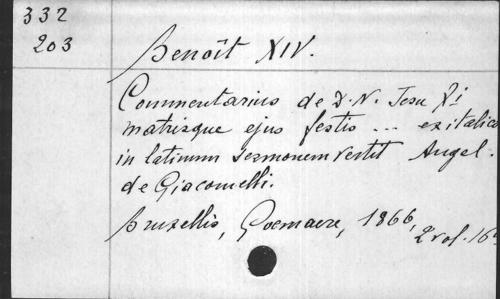 332
203
Benoît XIV.
Commentarius de D. N. Jesu Xi
matrisque ejus festis ... ex italico
in latinum sermonem vertit Angel.
de Giacomelli.
Bruxellis, Goemaere, 1866,
2 vol. 16°